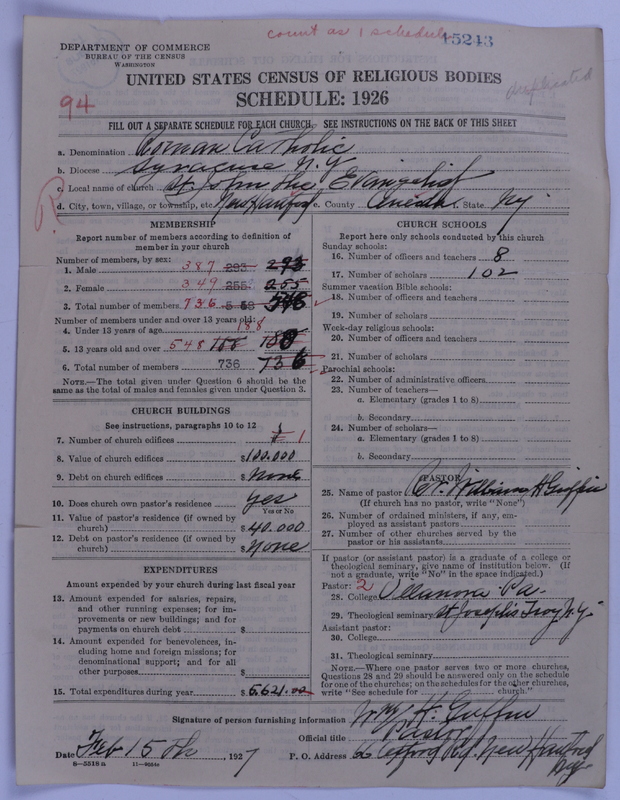 count as 1 schedule
15243
DEPARTMENT OF COMMERCE
BUREAU OF THE CENSUS
WASHINGTON
UNITED STATES CENSUS OF RELIGIOUS BODIES
SCHEDULE: 1926
94
duplicated
FILL OUT A SEPARATE SCHEDULE FOR EACH CHURCH. SEE INSTRUCTIONS ON THE BACK OF THIS SHEET
a. Denomination Roman Catholic
b. Diocese Syracuse N.Y
c. Local name of church St. John The Evangelist
d. City, town, village, or township, etc. New Hartford e. County Oneida State NY
R
MEMBERSHIP
Report number of members according to definition of member in your church
Number of members, by sex:
1. Male 387 293 293
2. Female 349 255 255
3. Total number of members 736 548 548
Number of members under and over 13 years old:
4. Under 13 years of age 188
5. 13 years old and over 548 188 188
6. Total number of members 736 736
NOTE.—The total given under Question 6 should be the
same as the total of males and females given under Question 3.
CHURCH BUILDINGS
See instructions, paragraphs 10 to 12
7. Number of church edifices 1 1
8. Value of church edifices $100.000
9. Debt on church edifices $None
10. Does church own pastor's residence Yes
Yes or No
11. Value of pastor's residence (if owned by
church) $40.000
12. Debt on pastor's residence (if owned by
church) $None
EXPENDITURES
Amount expended by your church during last fiscal year
13. Amount expended for salaries, repairs,
and other running expenses; for im-
provements or new buildings; and for
payments on church debt $
14. Amount expended for benevolences, in-
cluding home and foreign missions; for
denominational support; and for all
other purposes $
15. Total expenditures during year $5.621.00
CHURCH SCHOOLS
Report here only schools conducted by this church
Sunday schools:
16. Number of officers and teachers 8
17. Number of scholars 102
Summer vacation Bible schools:
18. Number of officers and teachers
19. Number of scholars
Week-day religious schools:
20. Number of officers and teachers
21. Number of scholars
Parochial schools:
22. Number of administrative officers
23. Number of teachers—
a. Elementary (grades 1 to 8)
b. Secondary
24. Number of scholars—
a. Elementary (grades 1 to 8)
b. Secondary
PASTOR
25. Name of pastor Rev. William H Griffin
(If church has no pastor, write "None")
26. Number of ordained ministers, if any, em-
ployed as assistant pastors
27. Number of other churches served by the
pastor or his assistants
If pastor (or assistant pastor) is a graduate of a college or
theological seminary, give name of institution below. (If
not a graduate, write "No" in the space indicated.)
Pastor: 2
28. College Villanova Pa.
29. Theological seminary St Joseph's Troy N.Y
Assistant pastor:
30. College
31. Theological seminary
NOTE.—Where one pastor serves two or more churches,
Questions 28 and 29 should be answered only on the schedule
for one of the churches; on the schedules for the other churches,
write "See schedule for church."
Signature of person furnishing information Wm H. Griffin
Official title Pastor
Date Feb 15 th, 1927 P. O. Address Oxford Rd. New Hartford
N.y.
8—5518a 11—9664c